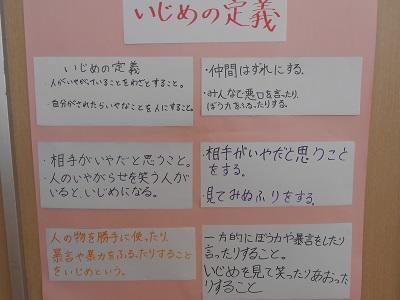 いじめの定義
いじめの定義
・人がいやがっていることをわざとすること。
・自分がされたらいやなことを人にすること。
・仲間はずれにする。
・みんなで悪口を言ったり、
ぼう力をふるったりする。
・相手がいやだと思うこと。
・人のいやがらせを笑う人が
いると、いじめになる。
・相手がいやだと思うことを
をする。
・見てみぬふりをする。
人の物を勝手に使ったり、
暴言や暴力をふるったりすること
をいじめという。
一方的にぼう力や暴言をしたり
言ったりすること。
いじめを見て笑ったりあおった
りすること